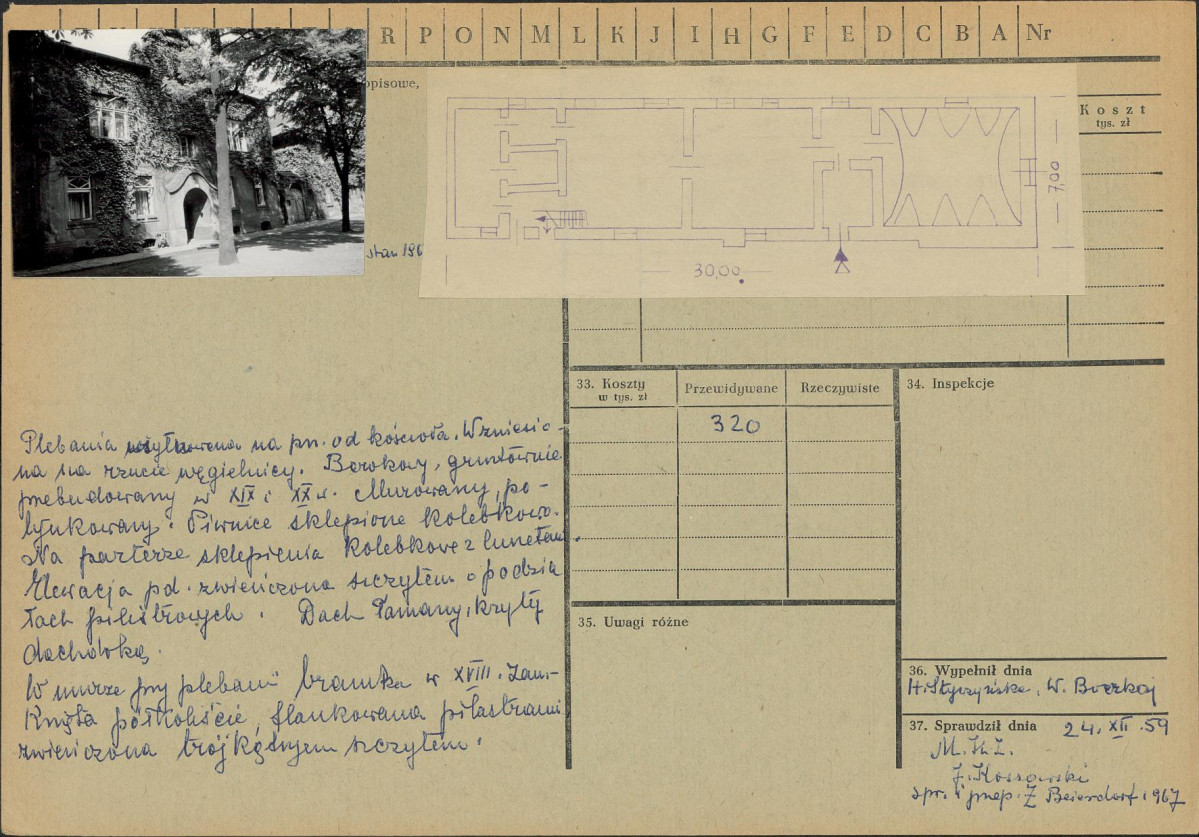 R P O N M L K J I H G F E D C B A Nr
opisowe,
Koszt
tys. zł
7,00
30,00
stan 196
33. Koszty
w tys. zł
Przewidywane
Rzeczywiste
34. Inspekcje
320
Plebania usytuowana na pn. od kościoła. Wzniesio-
na na rzucie węgielnicy. Barokowy, gruntownie
przebudowany w XIX i XX w. Murowany, po-
tynkowany. Piwnice sklepione kolebkowo.
Na parterze sklepienia kolebkowe z lunetami.
Elewacja pd. zwieńczona szczytem o podzia
łach pilastrowych. Dach łamany, kryty
dachówką.
W murze przy plebanii bramka w XVIII. Zam-
knięta półkoliście, flankowana pilastrami
zwieńczona trójkątnym szczytem.
35. Uwagi różne
36. Wypełnił dnia
H. Styczyńska, W. Boczkaj
37. Sprawdził dnia 24. XII. 59
J. Kossowski
spr. i przep. Z Beiersdorf 1967